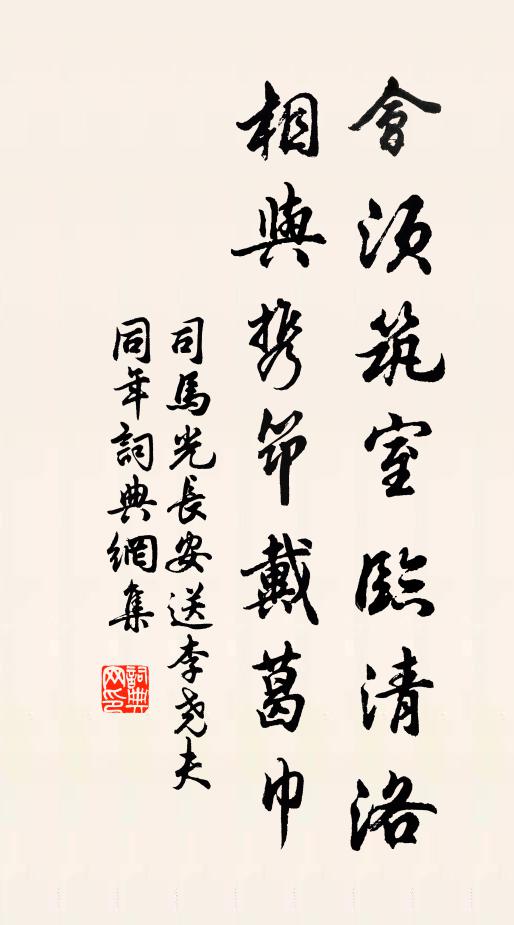 會須筑室臨清洛
相與携筇戴葛巾
司馬光長安送李尧夫
同年詞典網集
詞典
网印